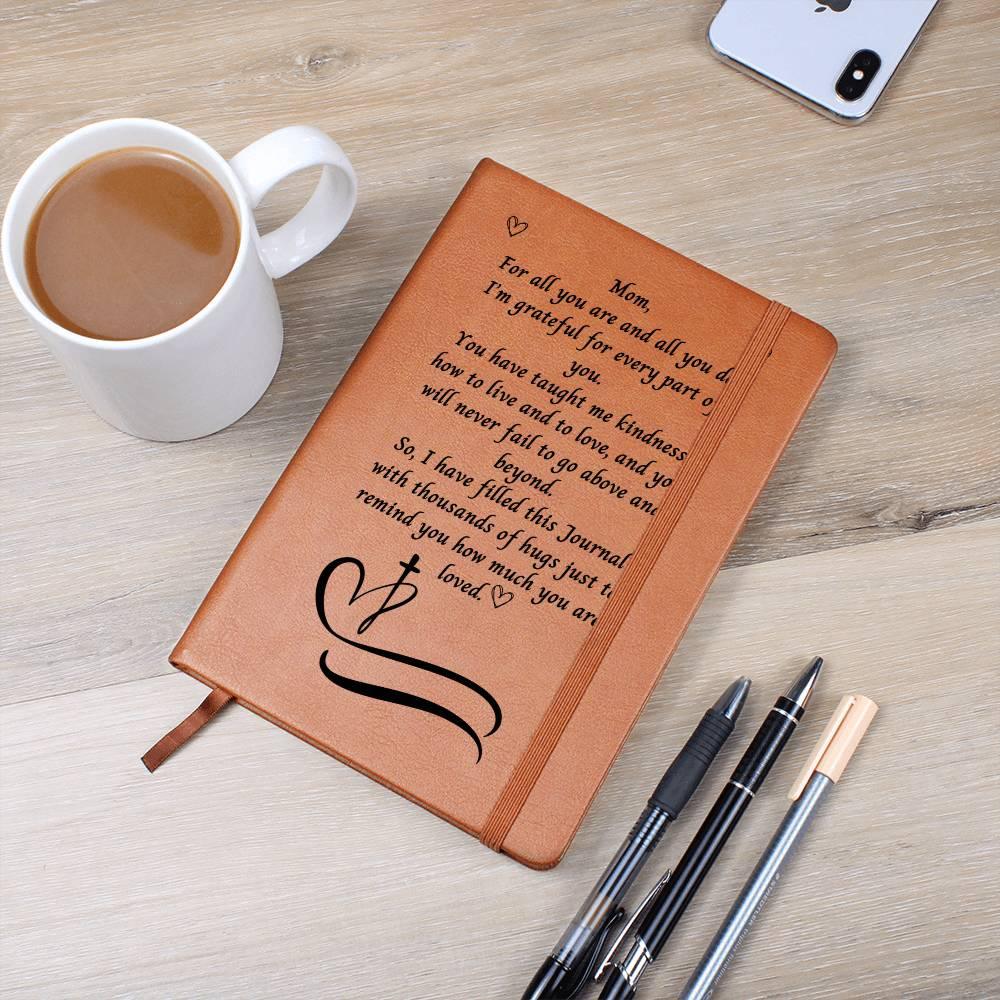 Mom,
For all you are and all you d
I'm grateful for every part o
you.
You have taught me kindness
how to live and to love, and yo
will never fail to go above and
beyond.
So, I have filled this Journal
with thousands of hugs just t
remind you how much you are
loved.